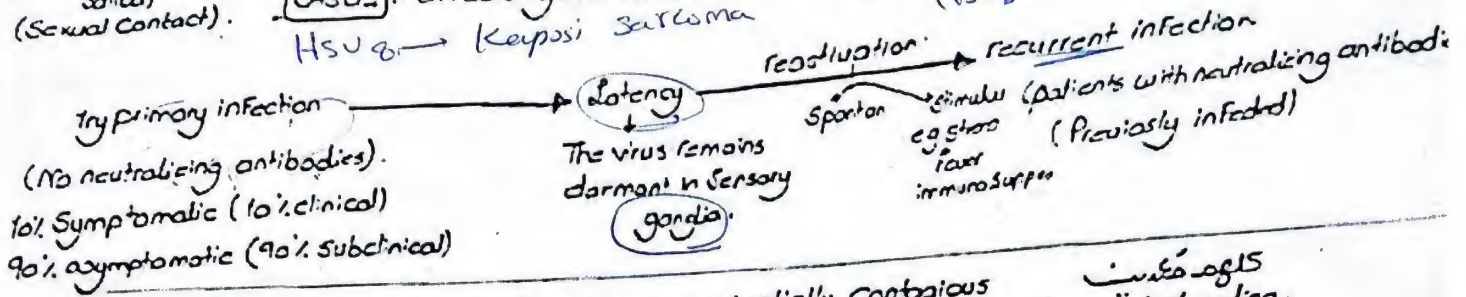 (Sexual Contact).
HSV8 → Kaposi Sarcoma
try primary infection → Latency → reactivation. → recurrent infection
(No neutralizing antibodies).
10% Symptomatic (10% clinical)
90% asymptomatic (90% subclinical)
The virus remains
dormant in Sensory
ganglia.
Spontan
stimulus
eg stress
fever
immunosuppres
(patients with neutralizing antibodie
(Previosly infected)
contagious